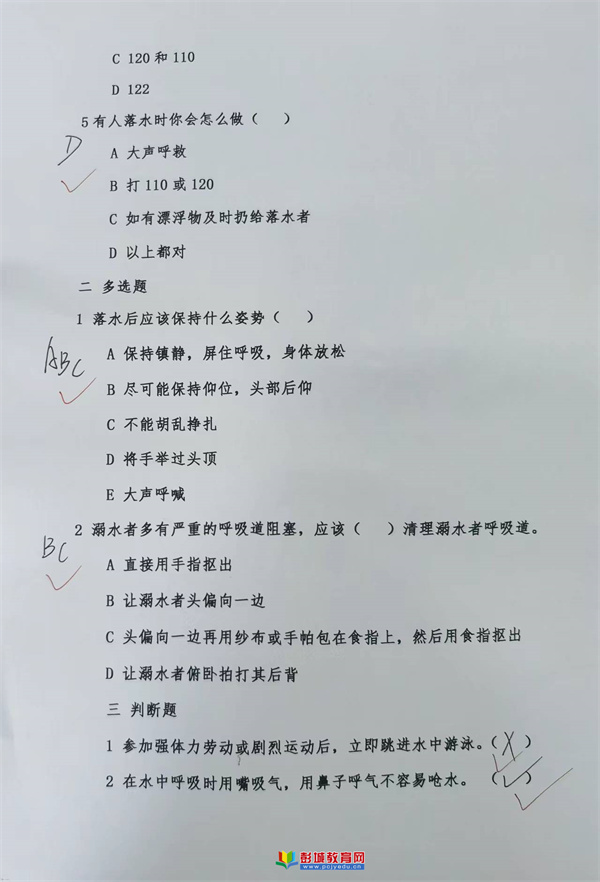 C 120 和 110
D 122
5 有人落水时你会怎么做（ ）
D
A 大声呼救
B 打 110 或 120
C 如有漂浮物及时扔给落水者
D 以上都对
二 多选题
1 落水后应该保持什么姿势（ ）
ABC
A 保持镇静，屏住呼吸，身体放松
B 尽可能保持仰位，头部后仰
C 不能胡乱挣扎
D 将手举过头顶
E 大声呼喊
2 溺水者多有严重的呼吸道阻塞，应该（ ）清理溺水者呼吸道。
BC
A 直接用手指抠出
B 让溺水者头偏向一边
C 头偏向一边再用纱布或手帕包在食指上，然后用食指抠出
D 让溺水者俯卧拍打其后背
三 判断题
1 参加强体力劳动或剧烈运动后，立即跳进水中游泳。（×）
2 在水中呼吸时用嘴吸气，用鼻子呼气不容易呛水。（√）
彭城教育网
www.pcjyedu.cn